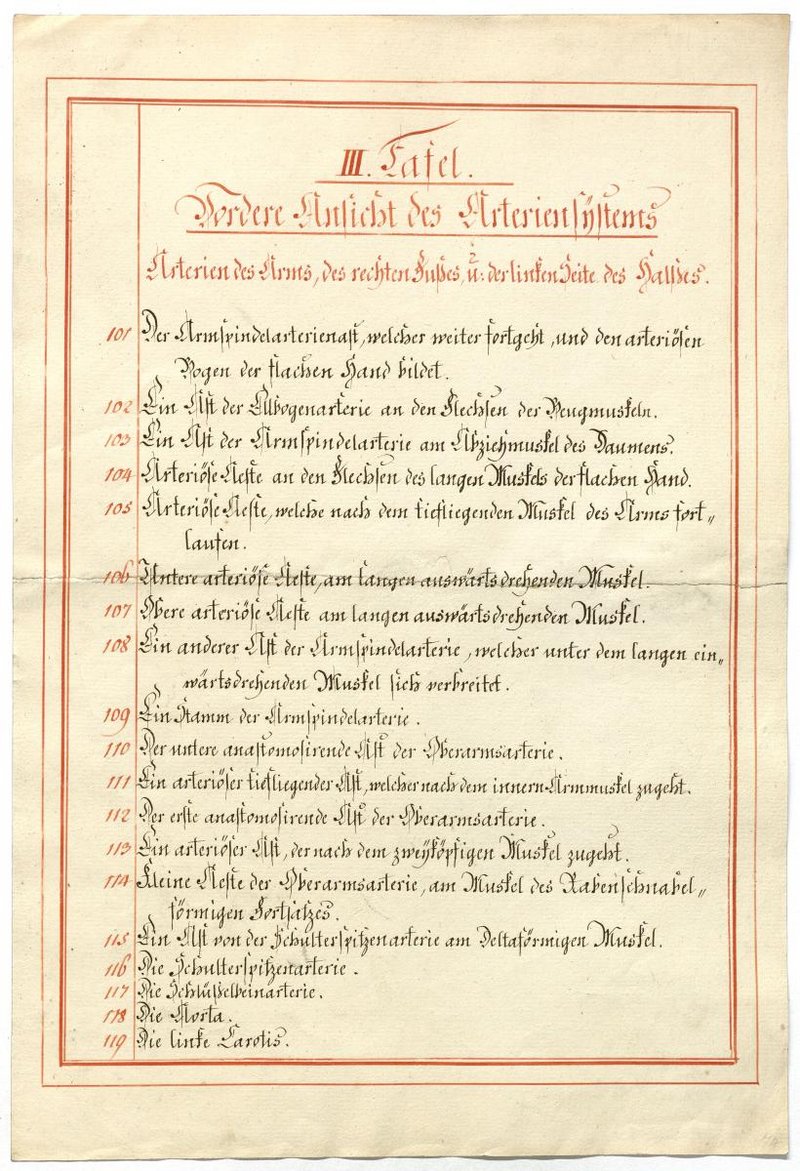 III. Tafel.
Vordere Ansicht des Arteriensÿstems
Arterien des Arms, des rechten Fußes, u: der linken Seite des Halses.
101 Der Armspindelarterienast, welcher weiter fortgeht, und den arteriösen
Bogen der flachen Hand bildet.
102 Ein Ast der Ellbogenarterie an den Flechsen der Beugmuskeln.
103 Ein Ast der Armspindelarterie am Abziehmuskel des Daumens.
104 Arteriöse Aeste an den Flechsen des langen Muskels der flachen Hand.
105 Arteriöse Aeste, welche nach dem tiefliegenden Muskel des Arms fort„
laufen.
106 Untere arteriöse Aeste, am langen auswärtsdrehenden Muskel.
107 Obere arteriöse Aeste am langen auswärtsdrehenden Muskel.
108 Ein anderer Ast der Armspindelarterie, welcher unter dem langen ein„
wärtsdrehenden Muskel sich verbreitet.
109 Ein Stamm der Armspindelarterie.
110 Der untere anastomosirende Ast der Oberarmsarterie.
111 Ein arteriöser tiefliegender Ast, welcher nach dem innern Armmuskel zugeht.
112 Der erste anastomosirende Ast der Oberarmsarterie.
113 Ein arteriöser Ast, der nach dem zweÿköpfigen Muskel zugeht.
114 Kleine Aeste der Oberarmsarterie, am Muskel des Rabenschnabel„
förmigen Fortsatzes.
115 Ein Ast von der Schulterspitzenarterie am Deltaförmigen Muskel.
116 Die Schulterspitzenarterie.
117 Die Schlüßelbeinarterie.
118 Die Aorta.
119 Die linke Carotis.